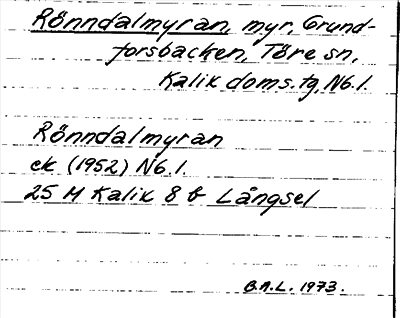 Rönndalmyran, myr, Grund-
forsbacken, Töre sn,
Kalix doms.tg, Nb.l.
Rönndalmyran
ek (1952) Nb.l.
25 M Kalix 8 b Långsel
B.A.L. 1973.